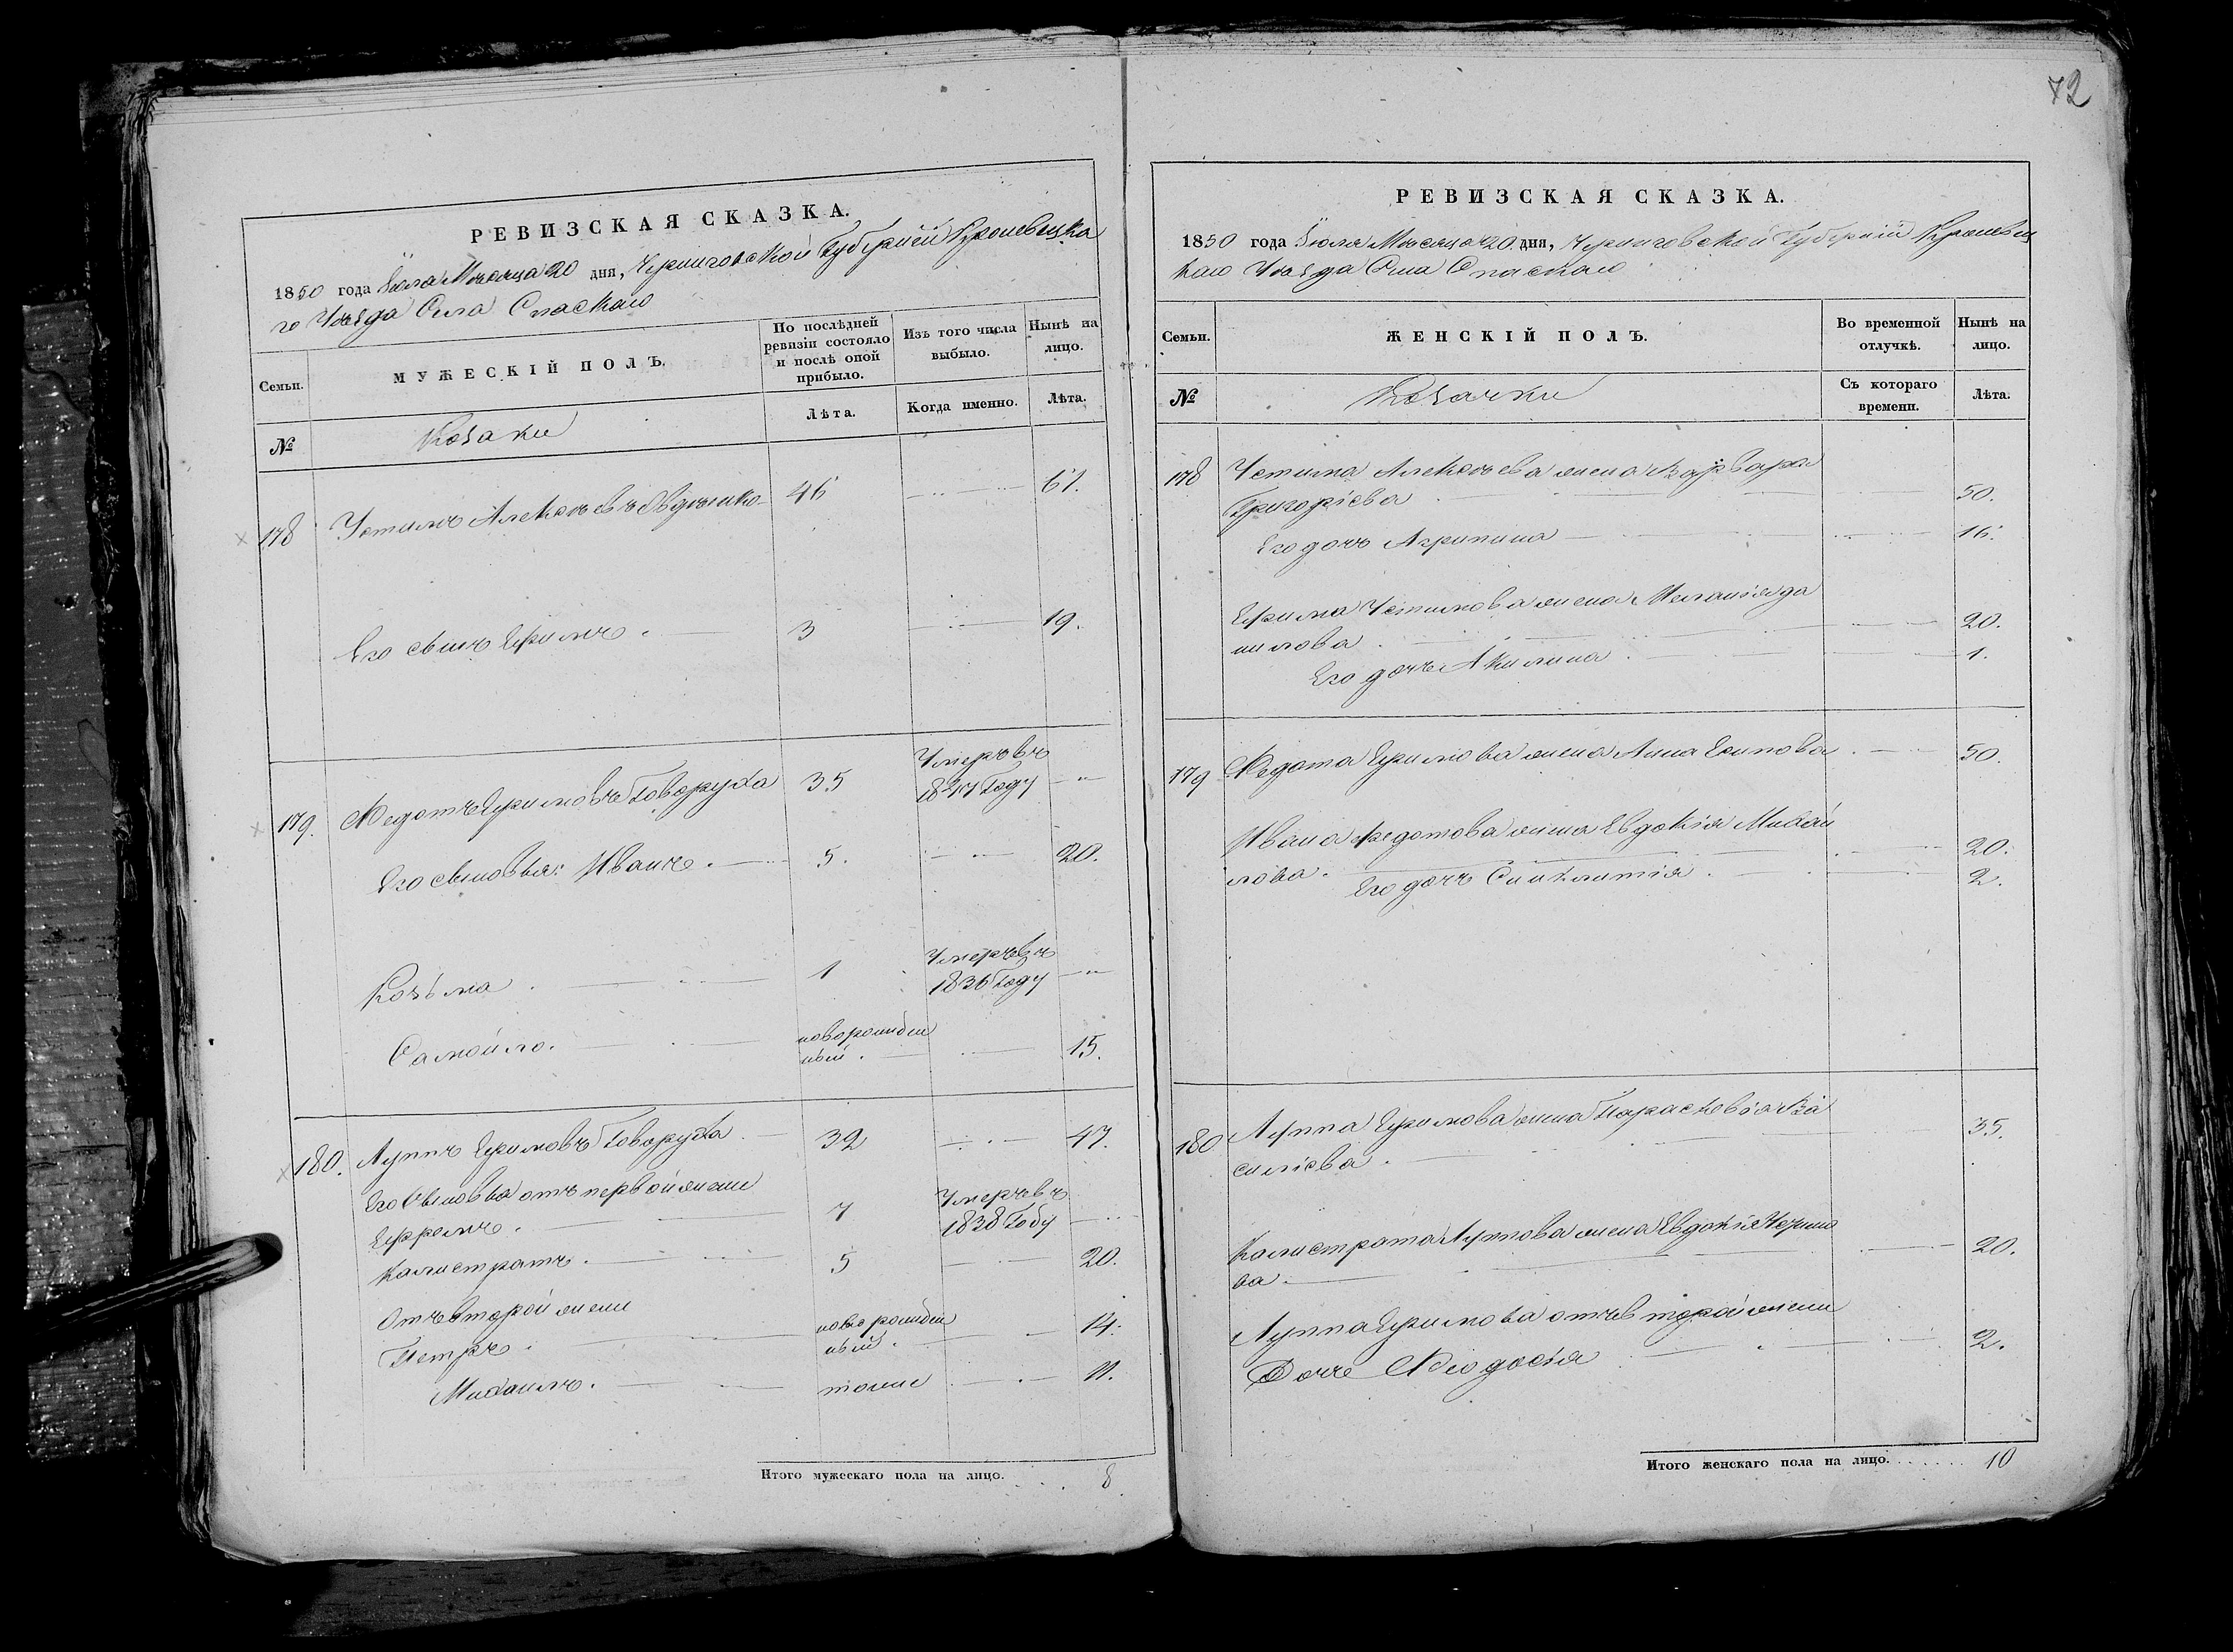 72
РЕВИЗСКАЯ СКАЗКА.
1850 года Іюля Месяца 20 дня, Черниговской Губерніи Кролевецка
го Уезда Села Спаскаго
Семьи.
МУЖЕСКІЙ ПОЛЪ.
По послѣдней ревизіи состояло и послѣ оной прибыло.
Изъ того числа выбыло.
Нынѣ на лицо.
№
Козаки
Лѣта.
Когда именно.
Лѣта.
178 Устимъ Алексѣевъ 46 61.
Его сынъ Ефимъ 3 19.
179. Федотъ Ефимовъ Говоруха 35 Умеръ въ 1847 Году
Его сыновья: Иванъ 5. 20.
Козьма 1 Умеръ въ 1836 Году
Самойло. новорожден
ный. 15.
180. Луппъ Ефимовъ Говоруха 32 47.
Его Сыновья отъ первой жены
Ефремъ. 7 Умеръ въ 1838 Году
Калистратъ. 5 20.
Отъ второй жены
Петръ. новорожден
ный. 14.
Михаилъ. тоже 11.
Итого мужескаго пола на лицо. 8
РЕВИЗСКАЯ СКАЗКА.
1850 года Іюля Месяца 20 дня, Черниговской Губерніи Кролевец
каго Уезда Села Спаскаго
Семьи.
ЖЕНСКІЙ ПОЛЪ.
Во временной отлучкѣ.
Нынѣ на лицо.
№
Козачки
Съ котораго времени.
Лѣта.
178 Устима Алексѣева жена Варвара
Григоріева 50.
Его дочь Агрипина 16.
Ефима Устимова жена Меланія Да
нилова 20.
Его дочь Акилина 1.
179 Федота Ефимова жена Анна Есипова 50.
Ивана Федотова жена Евдокія Михай
лова. 20.
Его дочь Синклитія 2.
180 Луппа Ефимова жена Парасковія Ва
силіева 35.
Калистрата Луппова жена Евдокія
ва 20.
Луппа Ефимова отъ второй жены
Дочь Феодосія 2.
Итого женскаго пола на лицо. 10